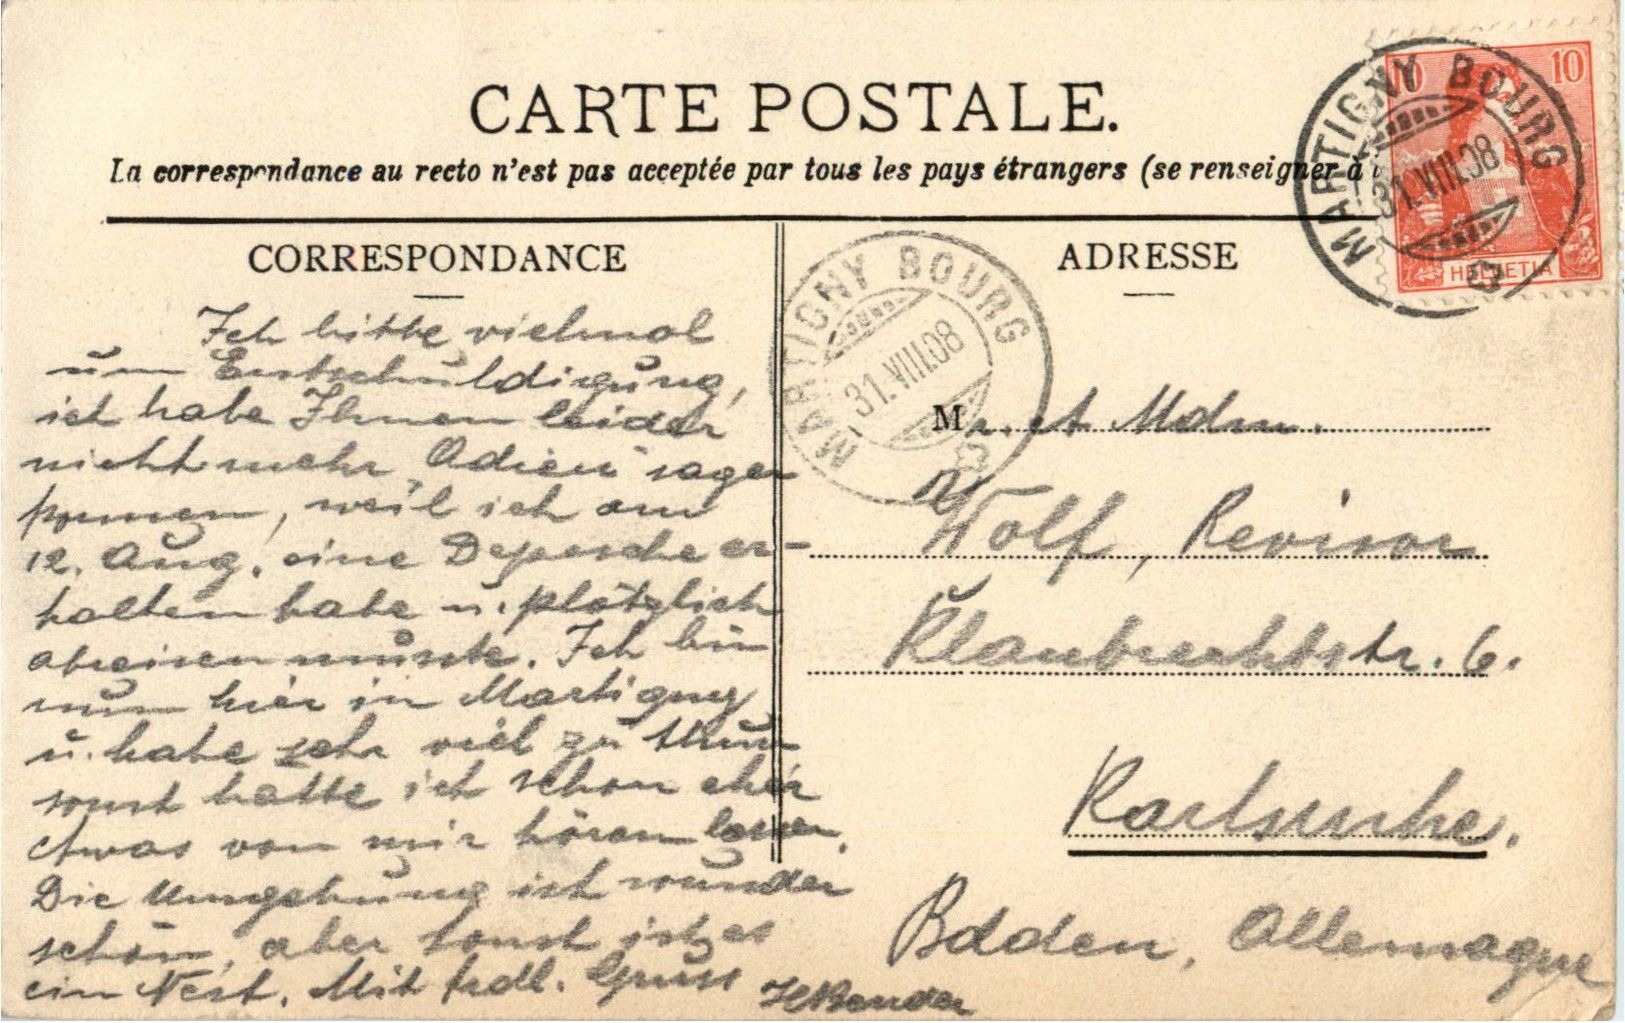 CARTE POSTALE.
La correspondance au recto n'est pas acceptée par tous les pays étrangers (se renseigner à
CORRESPONDANCE
Ich bitte vielmal
um Entschuldigung,
ich habe Ihnen leider
nicht mehr Adieu sagen
können, weil ich am
12. Aug. eine Depesche er-
halten habe u. plötzlich
abreisen musste. Ich bin
nun hier in Martigny
u. habe sehr viel zu thun
sonst hätte ich schon eher
etwas von mir hören lassen.
Die Umgebung ist wunder
schön, aber sonst ist es
ein Nest. Mit frdl. Gruss
HBender
MARTIGNY BOURG
31.VIII.08
ADRESSE
Mr. et Mdm.
Wolf, Revisor
Klaubrechtstr. 6.
Karlsruhe.
Baden, Allemagne
10 10
HELVETIA
MARTIGNY BOURG
31.VIII.08